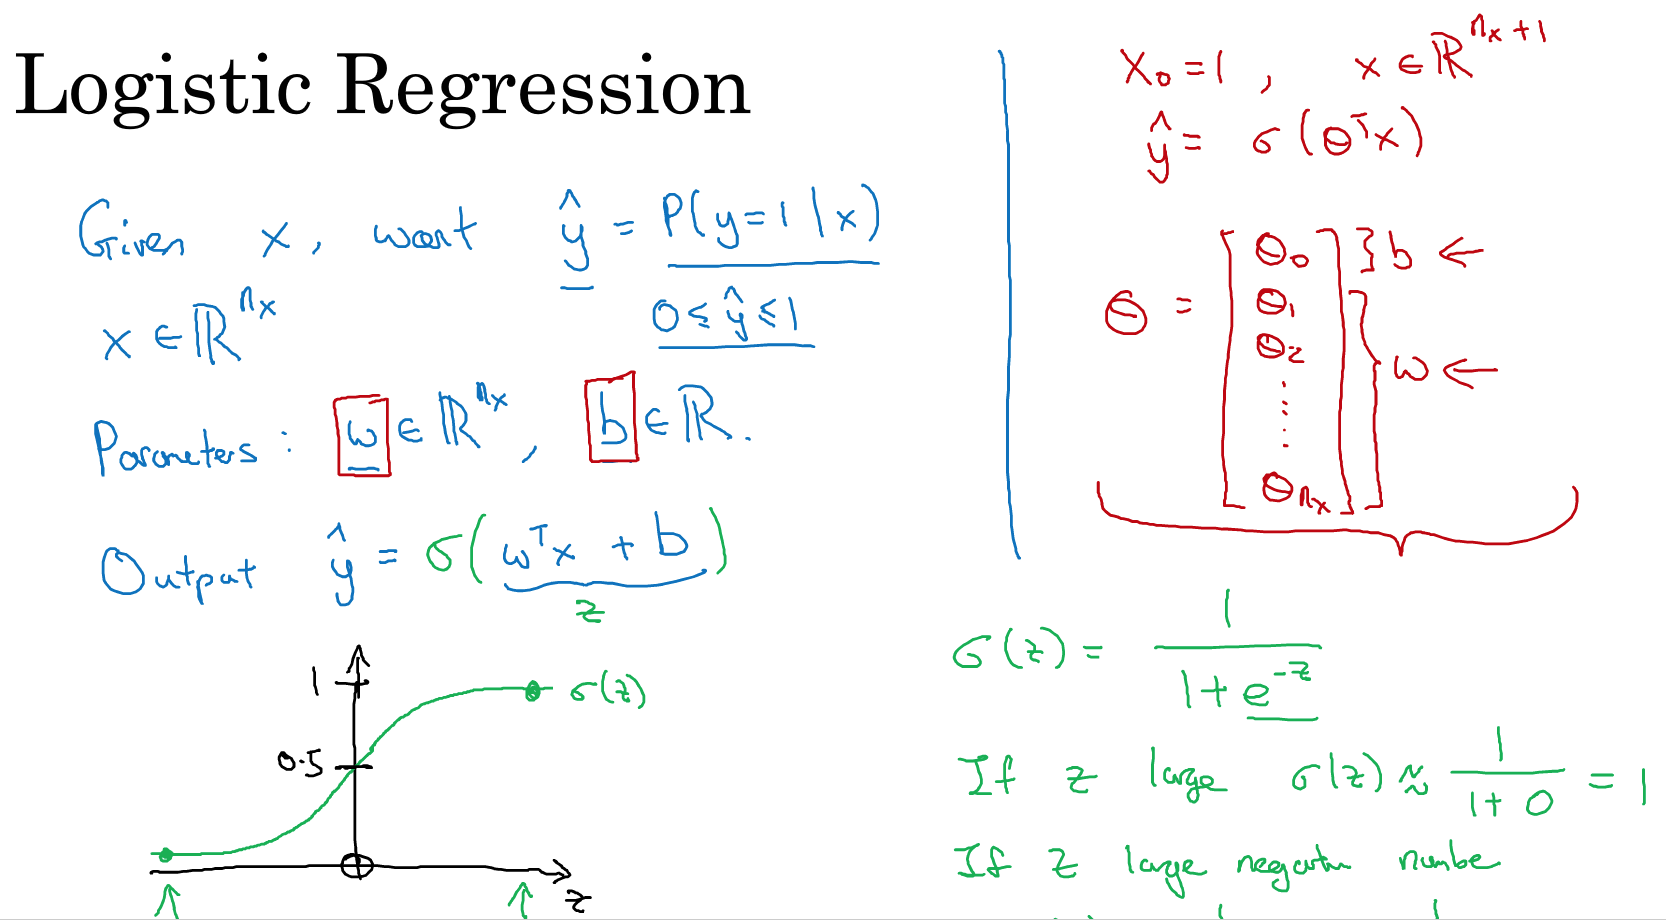 Logistic Regression
Given x, want ŷ = P(y=1|x)
0 ≤ ŷ ≤ 1
x ∈ ℝ^{n_x}
Parameters: w ∈ ℝ^{n_x}, b ∈ ℝ.
Output ŷ = σ(w^T x + b)
z
1
σ(z)
0.5
z
x_0 = 1, x ∈ ℝ^{n_x+1}
ŷ = σ(θ^T x)
θ = [θ_0 θ_1 θ_2 ⋮ θ_{n_x}]
} b ←
} w ←
σ(z) = 1/(1+e^{-z})
If z large σ(z) ≈ 1/(1+0) = 1
If z large negative number